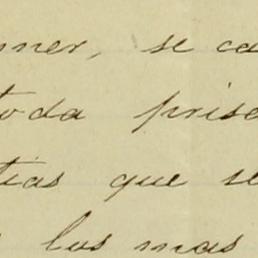 mer, se ca
toda prisa
tias que se
las mas